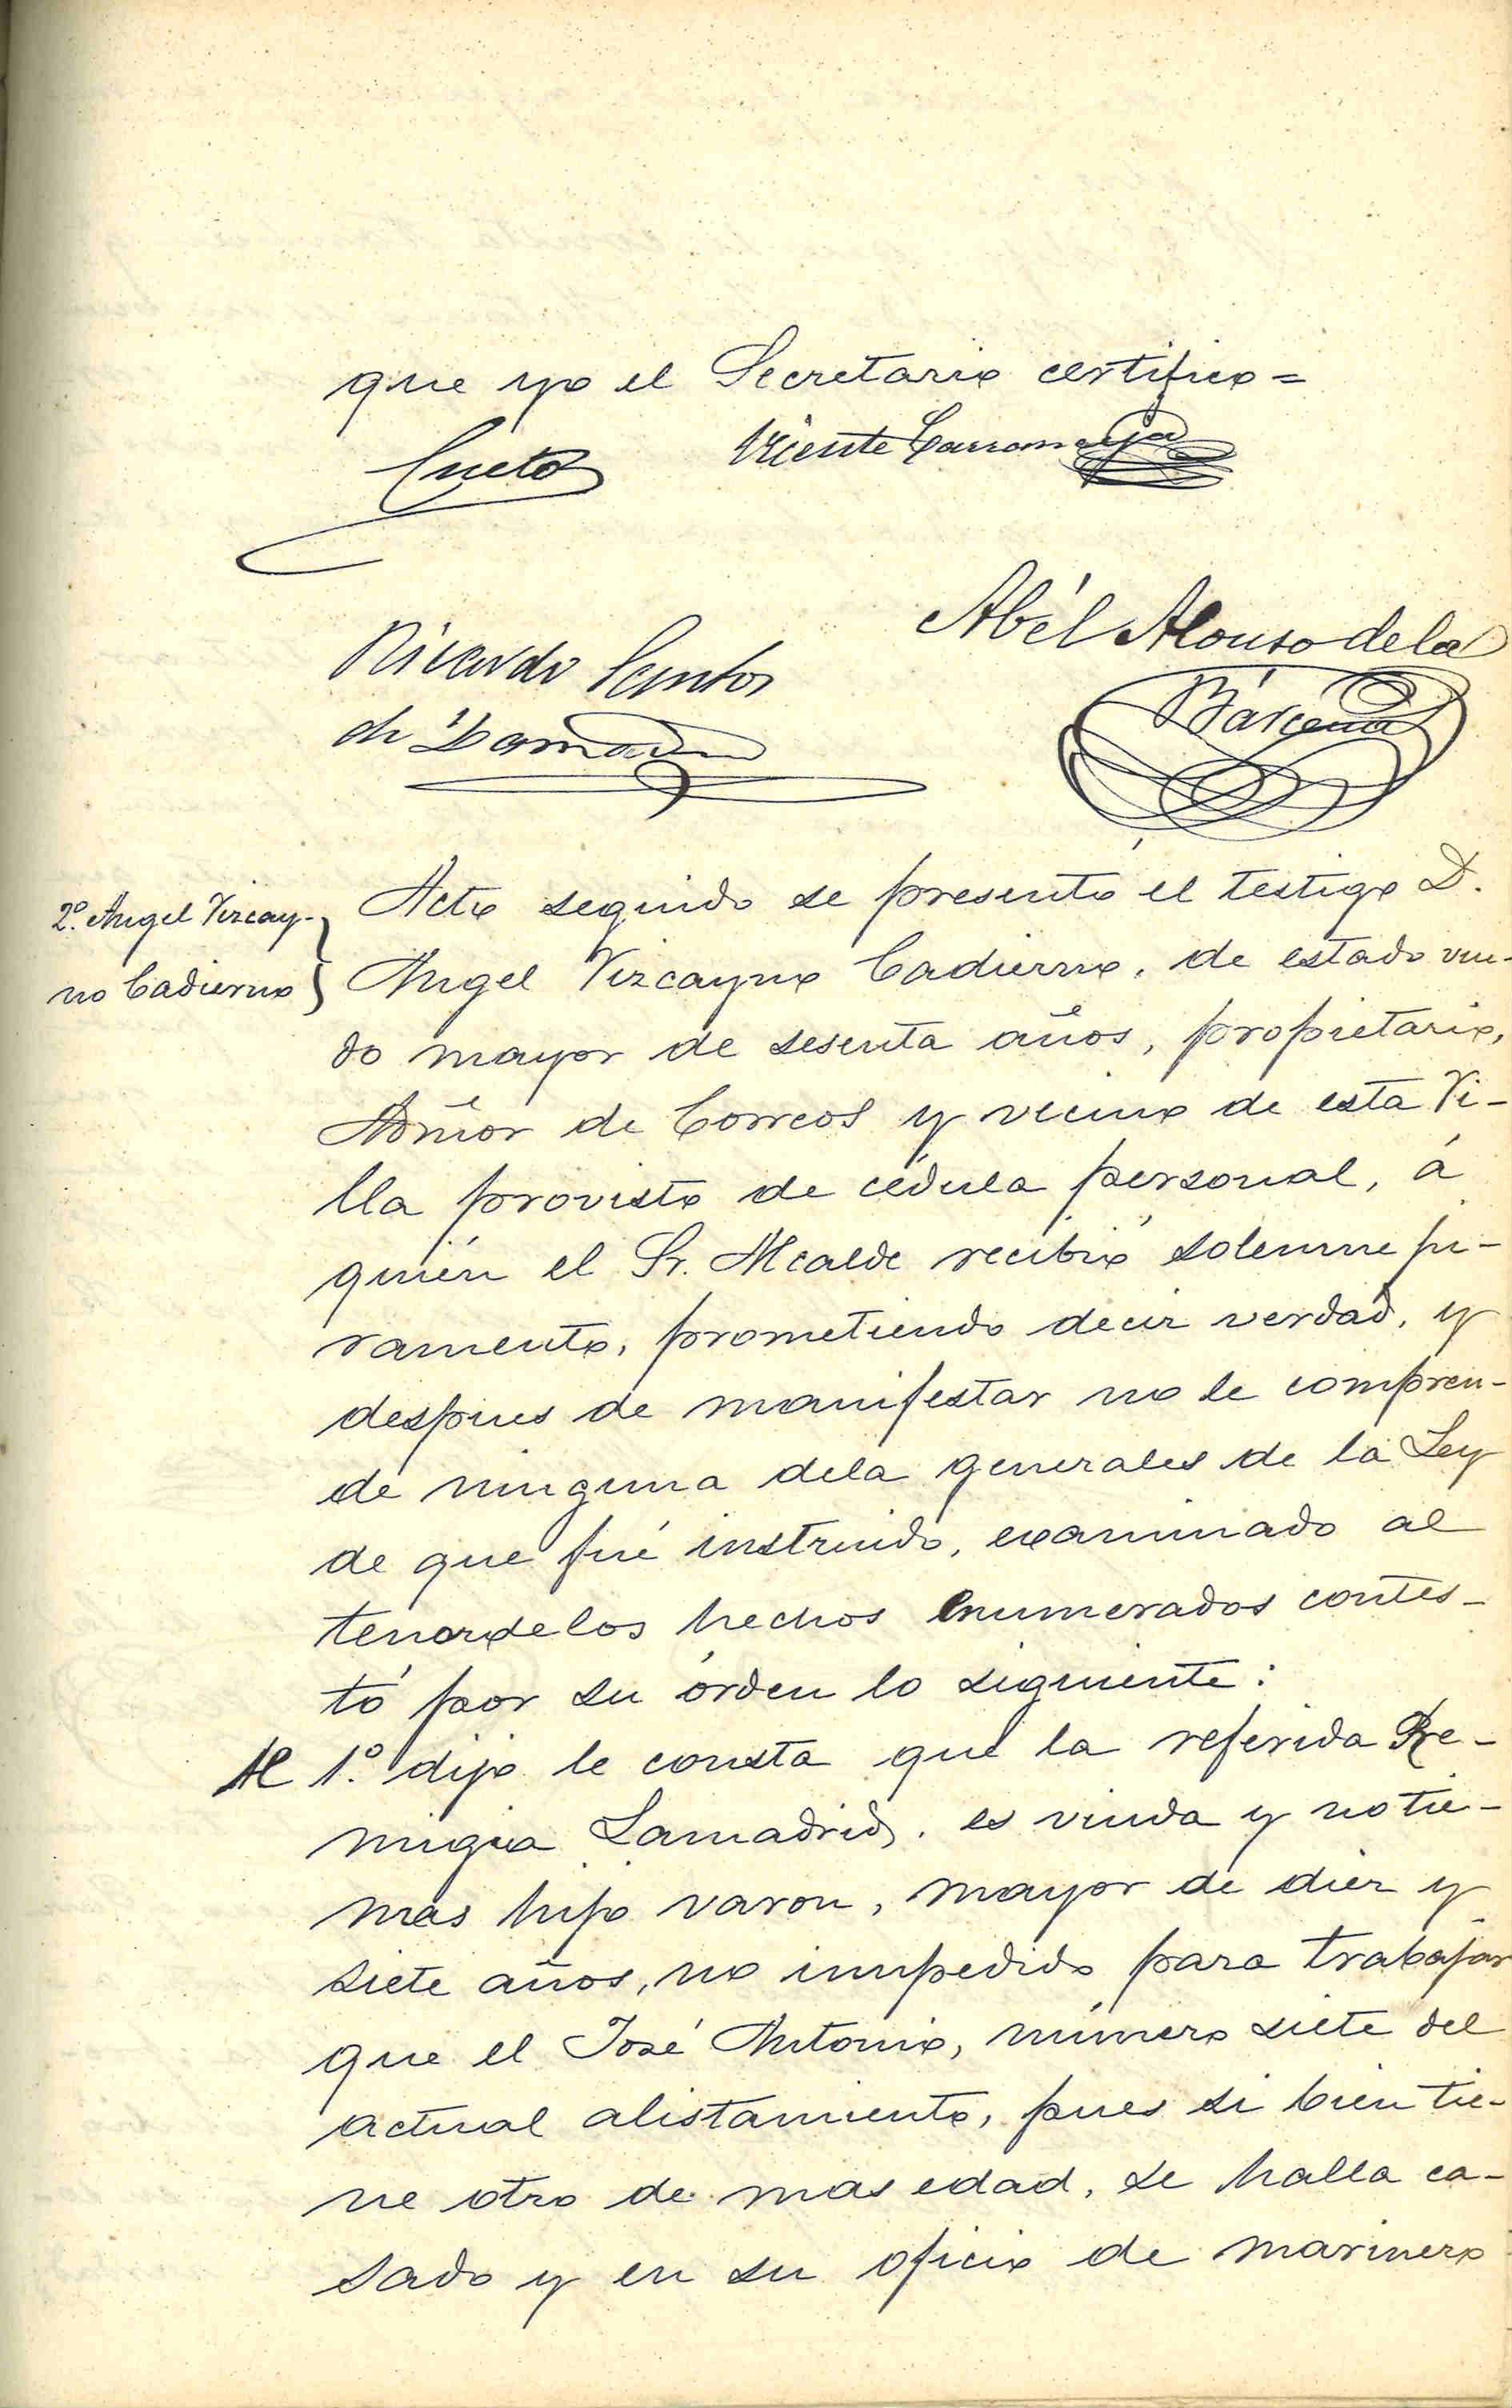 que yo el Secretario certifico=
Cueto
Vicente
Abél Alonso de la
Bárcena
Ricardo Santos
de
2º. Angel Vizcay-
no Cadierno
Acto seguido se presentó el testigo D.
Angel Vizcayno Cadierno, de estado viu-
do mayor de sesenta años, propietario,
Admor de Correos y vecino de esta Vi-
lla provisto de cédula personal, á
quién el Sr. Alcalde recibió solemne ju-
ramento, prometiendo decir verdad, y
despues de manifestar no le compren-
de ninguna dela generales de la Ley
de que fué instruido, examinado al
tenor de los hechos enumerados contes-
tó por su órden lo siguiente:
Al 1.º dijo le consta que la referida Re-
migia Lamadrid, es viuda y no tie-
mas hijo varon, mayor de diez y
siete años, no impedido para trabajar
que el José Antonio, número siete del
actual alistamiento, pues si bien tie-
ne otro de mas edad, se halla ca-
sado y en su oficio de marinero